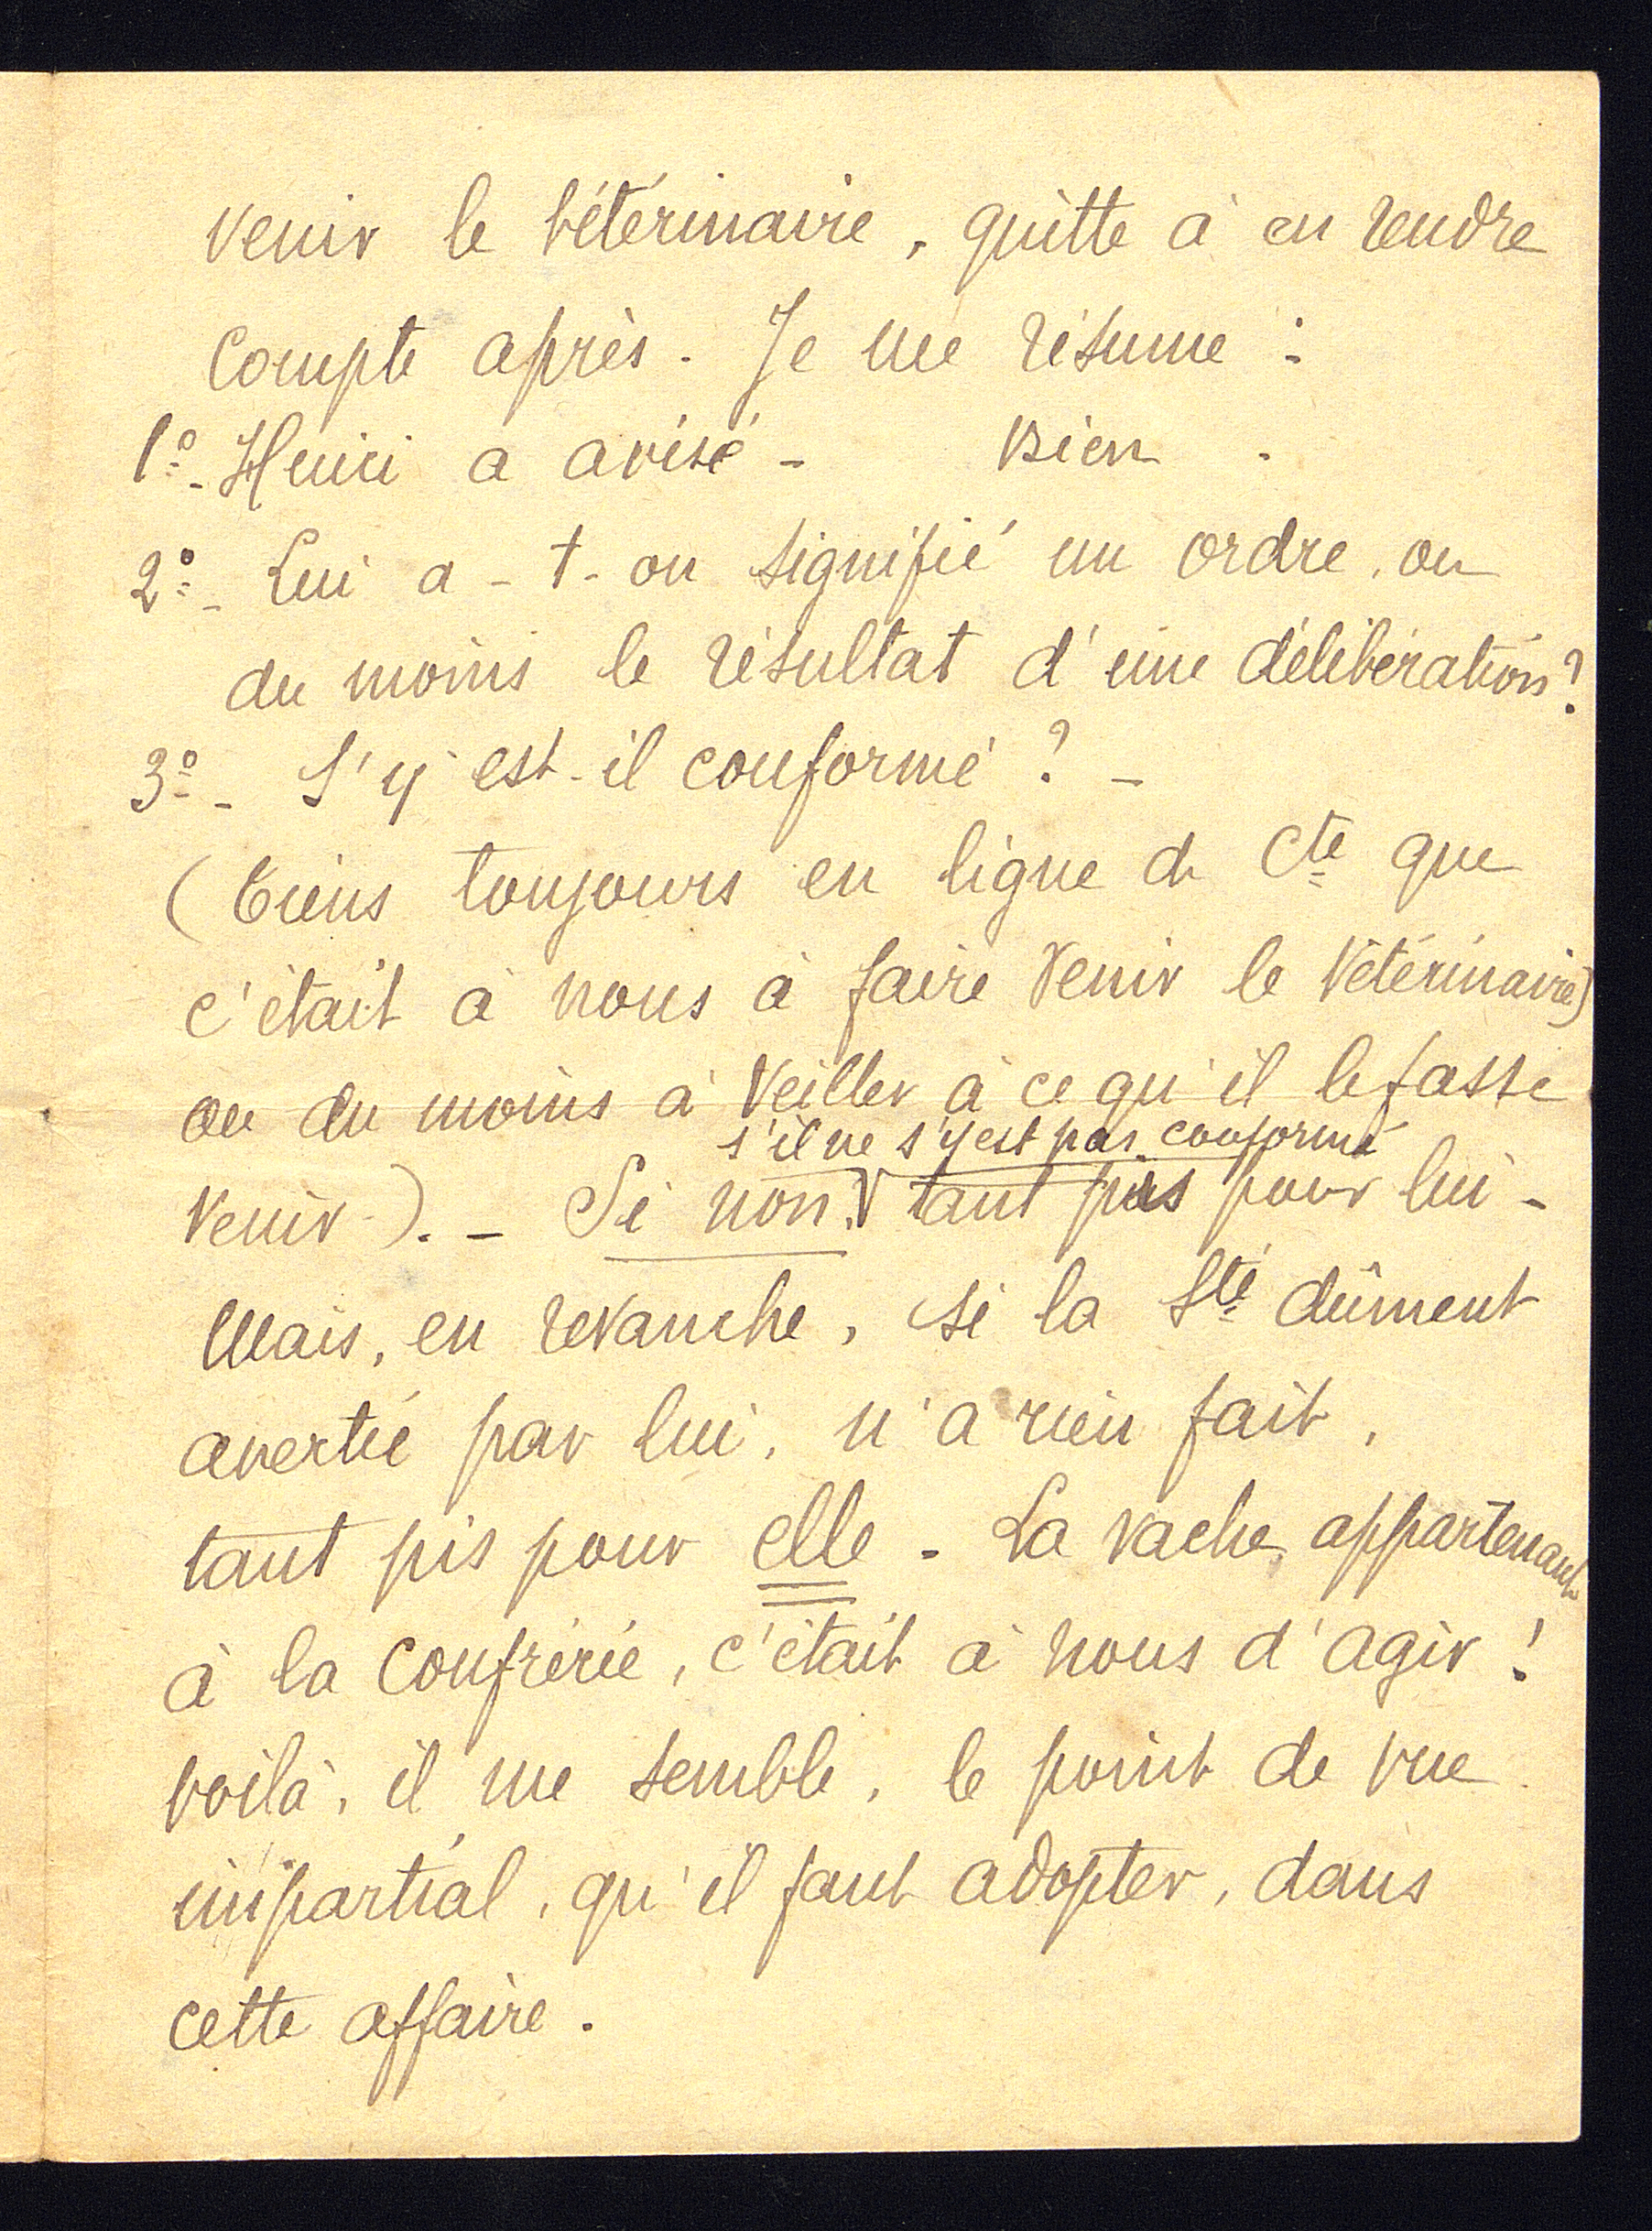 venir le vétérinaire, quitte à en rendre
compte après. Je me résume :
1º- Henri a avisé - Bien.
2º- Lui a-t-on signifié un ordre, ou
du moins le résultat d'une délibération ?
3º- S'y est-il conformé ? -
(Tiens toujours en ligne de Cte que
c'était à nous à faire venir le vétérinaire)
ou du moins à veiller à ce qu'il le fasse
s'il ne s'y est pas conformé
venir). - Si non, V tant pis pour lui -
Mais, en revanche, si la Sté dûment
avertie par lui, n'a rien fait,
tant pis pour elle. La vache, appartenant
à la confrérie, c'était à nous d'agir !
voilà, il me semble, le point de vue
impartial, qu'il faut adopter, dans
cette affaire.